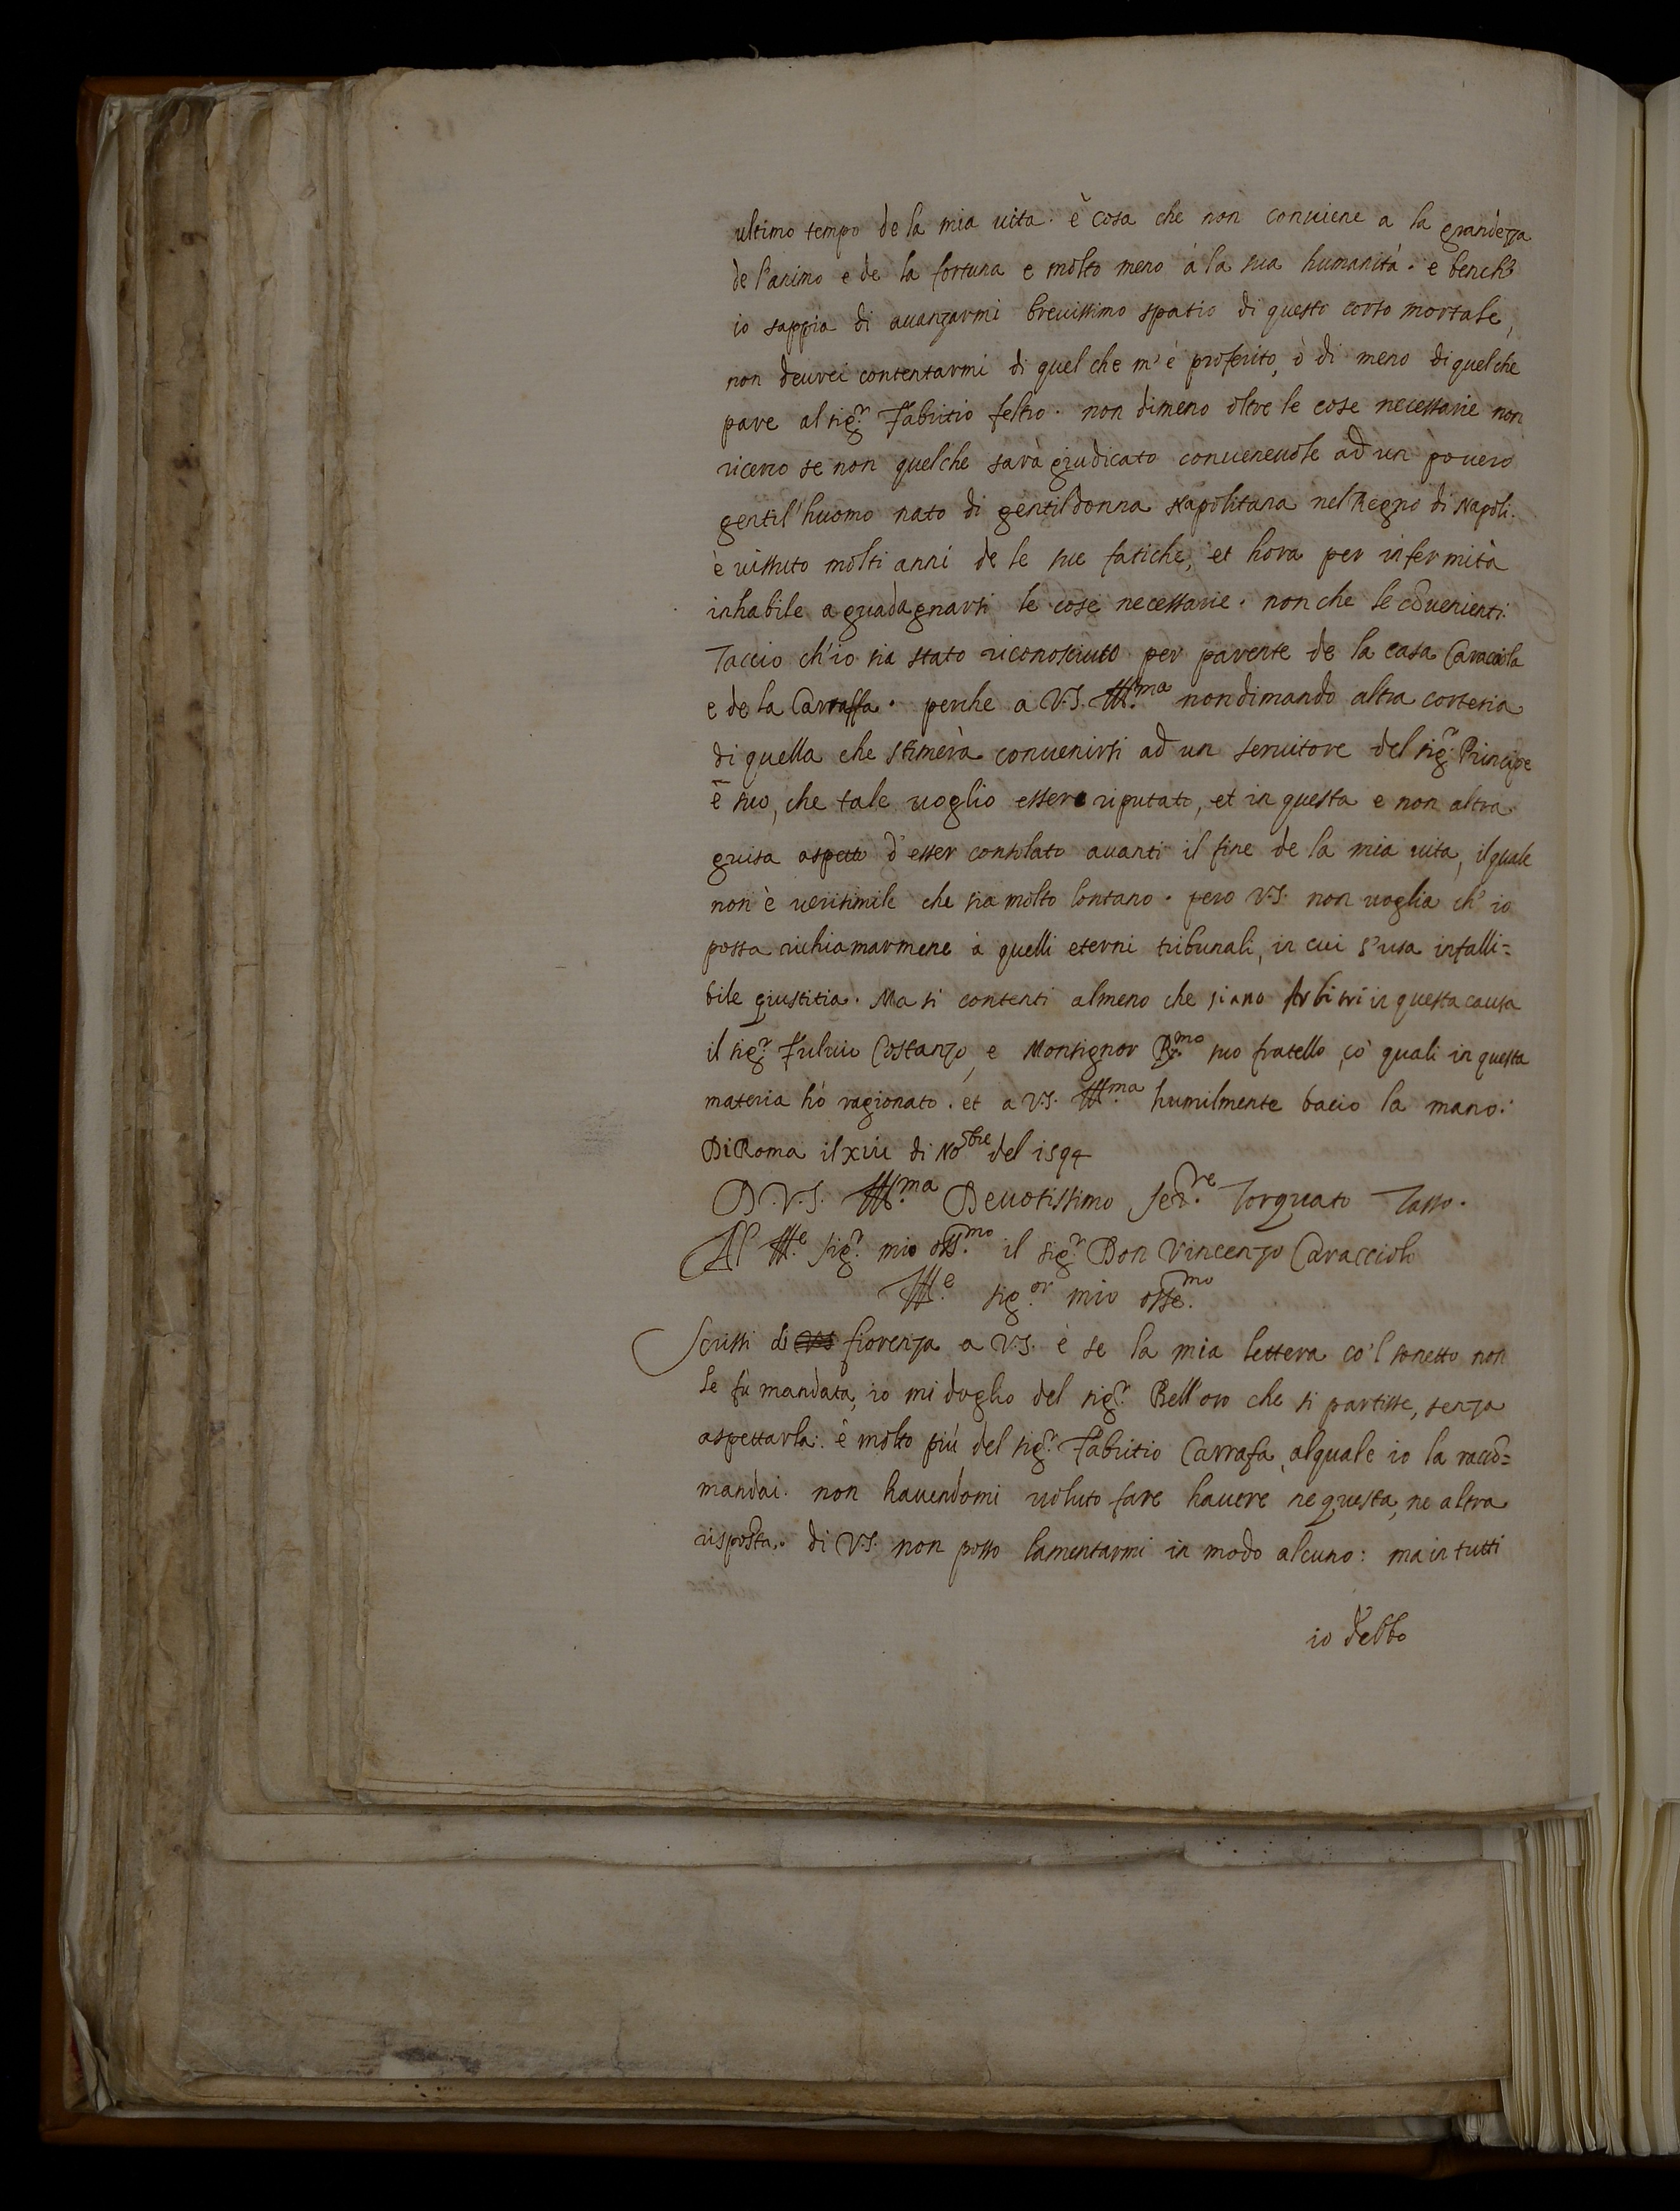 ultimo tempo de la mia uita. è cosa che non conuiene a la grandezza
de l'animo e de la fortuna e molto meno à la sua humanità. e benche
io sappia di auanzarmi breuissimo spatio di questo corso mortale,
non deurei contentarmi di quel che m'è proferito, ò di meno di quel che
pare al sig.r Fabritio feltro. non dimeno oltre le cose necessarie non
ricerco se non quelche sarà giudicato conueneuole ad un pouero
gentil'huomo nato di gentildonna Napolitana nel Regno di Napoli.
è uissuto molti anni de le sue fatiche, et hora per infermità
inhabile a guadagnarsi le cose necessarie. non che le cõuenienti.
Taccio ch'io sia stato riconosciuto per parente de la casa Caracciola
e de la Carraffa. perche a V.S. Ill.ma non dimando altra cortesia
di quella che stimerà conuenirsi ad un seruitore del sig.r Principe
è suo, che tale uoglio essere riputato, et in questa e non altra
guisa aspetto d'esser consolato auanti il fine de la mia uita, il quale
non è uerisimile che sia molto lontano. pero V.S. non uoglia ch'io
possa richiamarmene à quelli eterni tribunali, in cui s'usa infalli=
bile giustitia. Ma si contenti almeno che siano Arbitri in questa causa
il sig.r Fuluio Costanzo, e Monsignor R.mo suo fratello, co' quali in questa
materia hò ragionato. et a V.S. Ill.ma humilmente bacio la mano.
Di Roma il xiii di No.bre del 1594
D.V.S. Ill.ma Deuotissimo Ser.re Torquato Tasso.
Al Ill.e sig.r mio oss.mo il sig.r Don Vincenzo Caracciolo
Ill.e sig.or mio osse.mo
Scrissi di fiorenza a V.S. è se la mia lettera co'l sonetto non
le fù mandata, io mi doglio del sig.r Bell'oro che si partisse, senza
aspettarla. è molto più del sig.r Fabritio Carrafa, alquale io la racõ=
mandai. non hauendomi uoluto fare hauere ne questa, ne altra
risposta. di V.S. non posso lamentarmi in modo alcuno: ma in tutti
io debbo